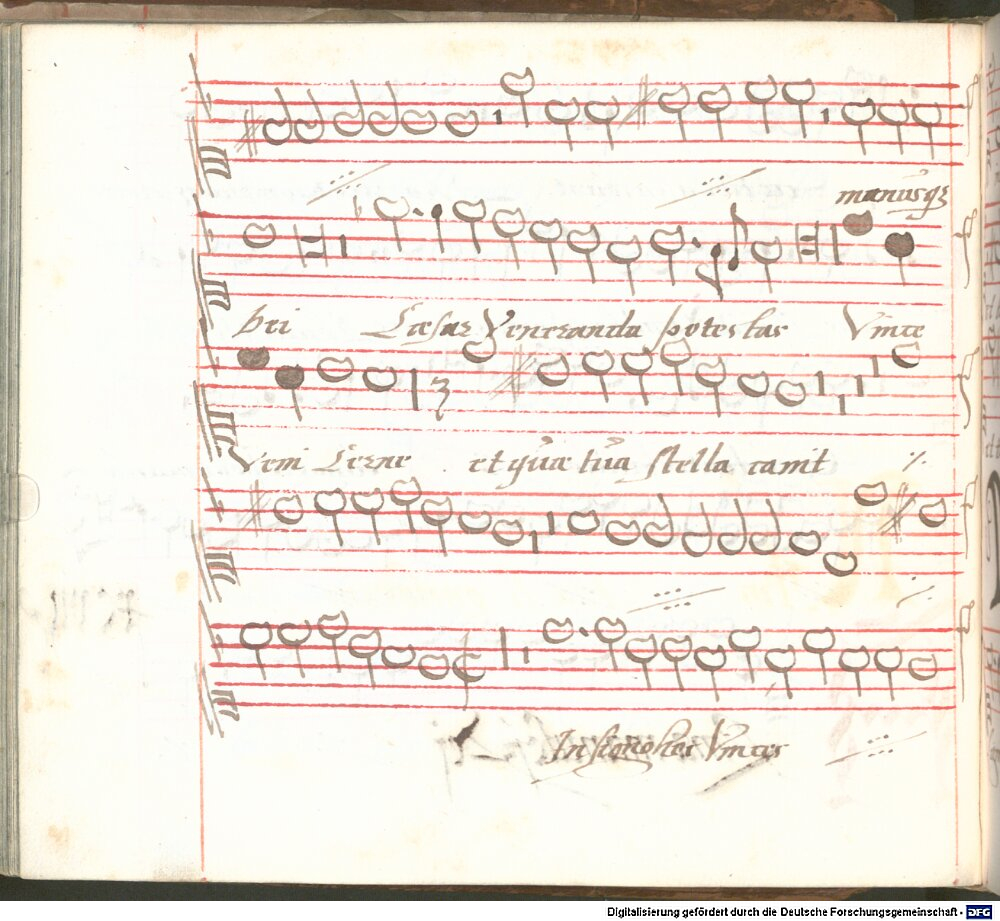 manusq3
Dei Cæsar Veneranda potestas Vince
Veni Cerne et quæ tua stella canit
In signo hoc Vinces
Digitalisierung gefördert durch die Deutsche Forschungsgemeinschaft - DFG